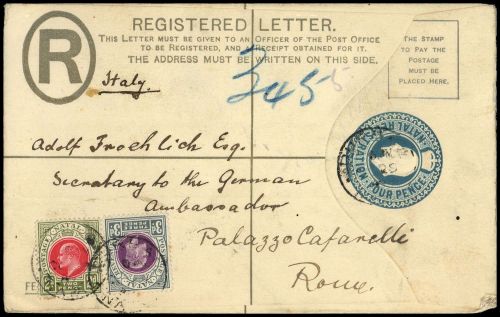 REGISTERED LETTER.
THIS LETTER MUST BE GIVEN TO AN OFFICER OF THE POST OFFICE
TO BE REGISTERED, AND A RECEIPT OBTAINED FOR IT.
THE ADDRESS MUST BE WRITTEN ON THIS SIDE.
R
THE STAMP
TO PAY THE
POSTAGE
MUST BE
PLACED HERE.
Italy.
3455
Adolf Froehlich Esq.
Secretary to the German
Ambassador
Palazzo Cafarelli
Rome.
NATAL
REGISTRATION
FOUR PENCE
POSTAGE NATAL
FE